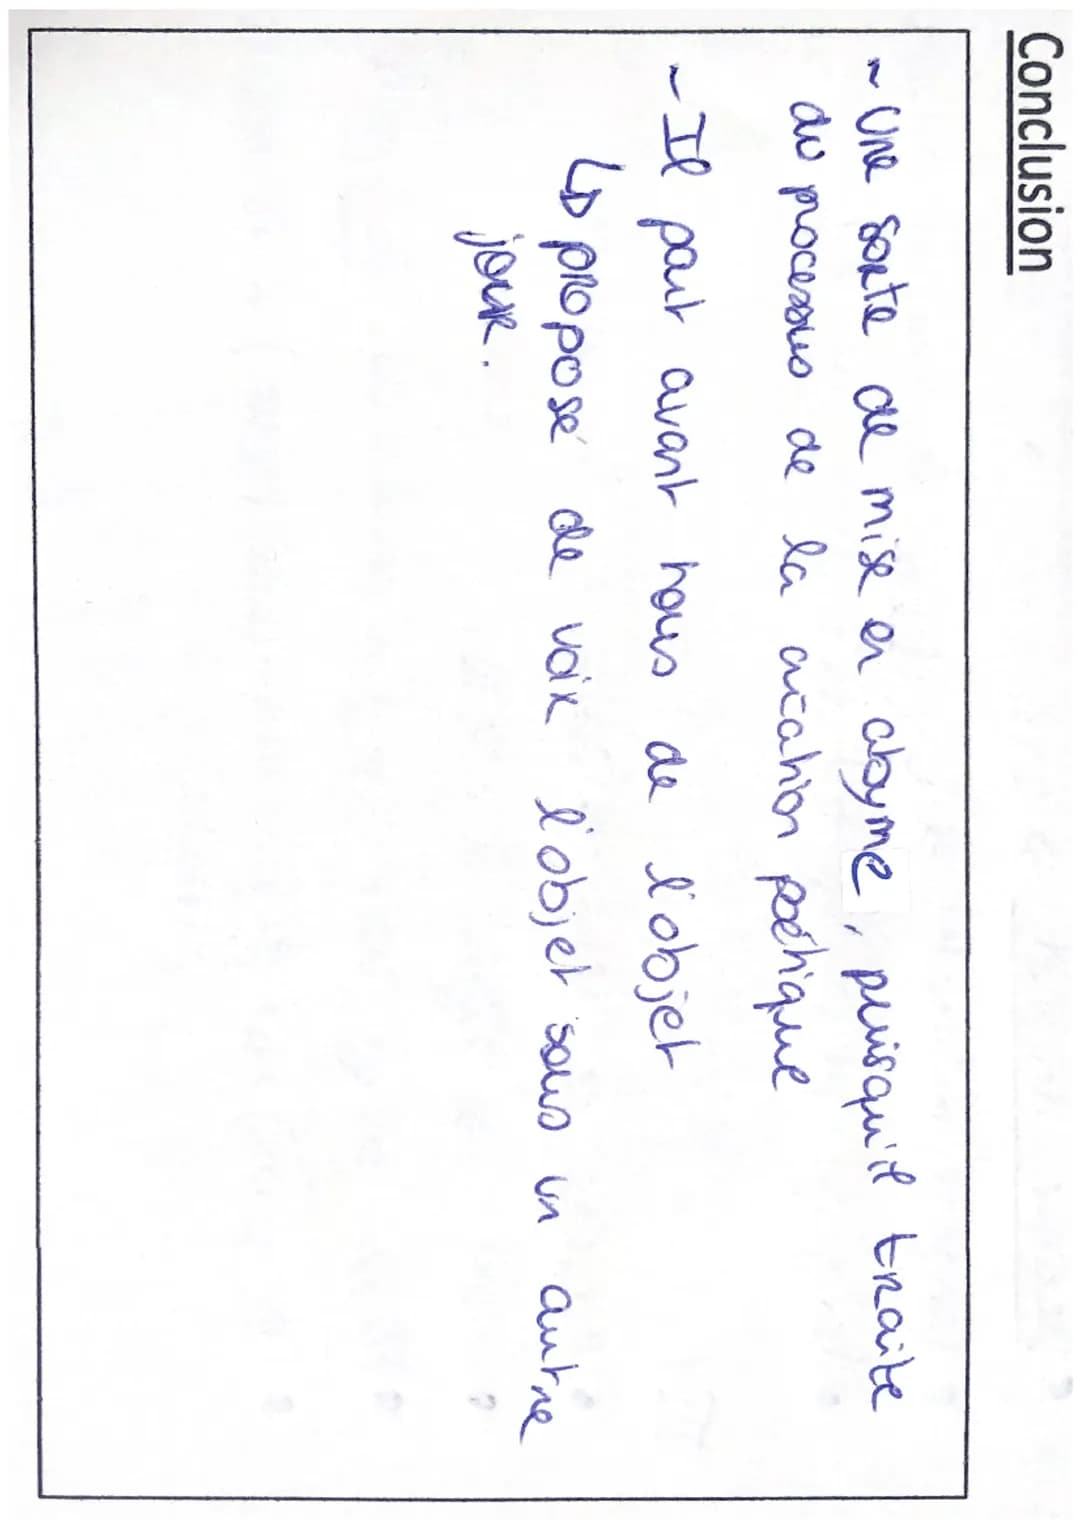 Conclusion
- Une sorte de mise en abyme, puisqu'il traite
du processus de la création poétique
- Il part avant nous de l'objet
↳ proposé de voir l'objet sous un autre
jour.